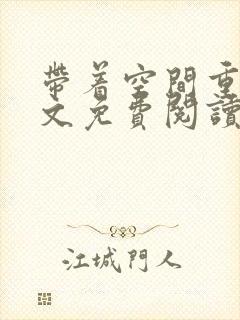 帶着空間重
文免費閱讀
江城門人